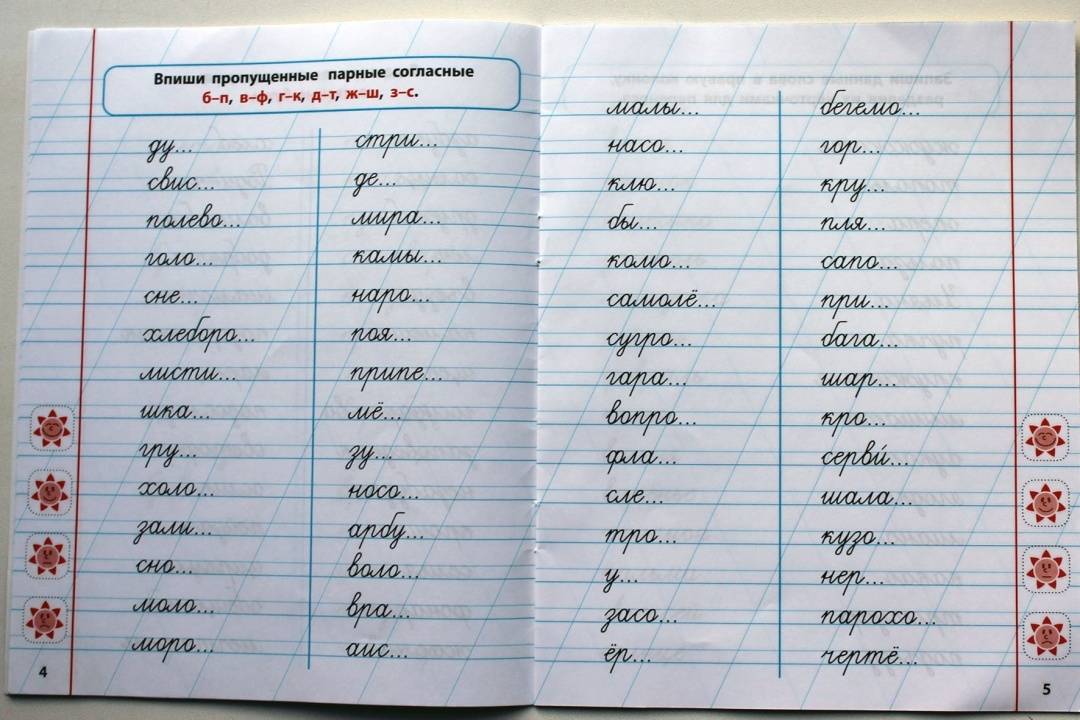 Впиши пропущенные парные согласные
б–п, в–ф, г–к, д–т, ж–ш, з–с.
ду...
свис...
полево...
голо...
сне...
хлеборо...
листи...
шка...
гру...
холо...
зали...
сно...
моло...
моро...
стри...
де...
мира...
камы...
наро...
поя...
припе...
лё...
зу...
носо...
арбу...
воло...
вра...
аис...
4
малы...
насо...
клю...
бы...
комо...
самолё...
сугро...
гара...
вопро...
фла...
сле...
тро...
у...
засо...
ёр...
бегемо...
гор...
кру...
пля...
сапо...
при...
бага...
шар...
кро...
серви́...
шала...
кузо...
нер...
парохо...
чертё...
5